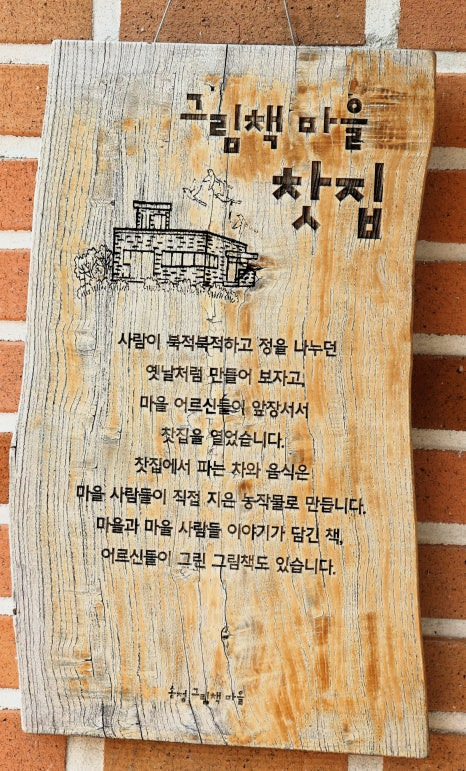 그림책 마을
찻집
사람이 북적북적하고 정을 나누던
옛날처럼 만들어 보자고,
마을 어르신들이 앞장서서
찻집을 열었습니다.
찻집에서 파는 차와 음식은
마을 사람들이 직접 지은 농작물로 만듭니다.
마을과 마을 사람들 이야기가 담긴 책,
어르신들이 그린 그림책도 있습니다.
송정 그림책 마을